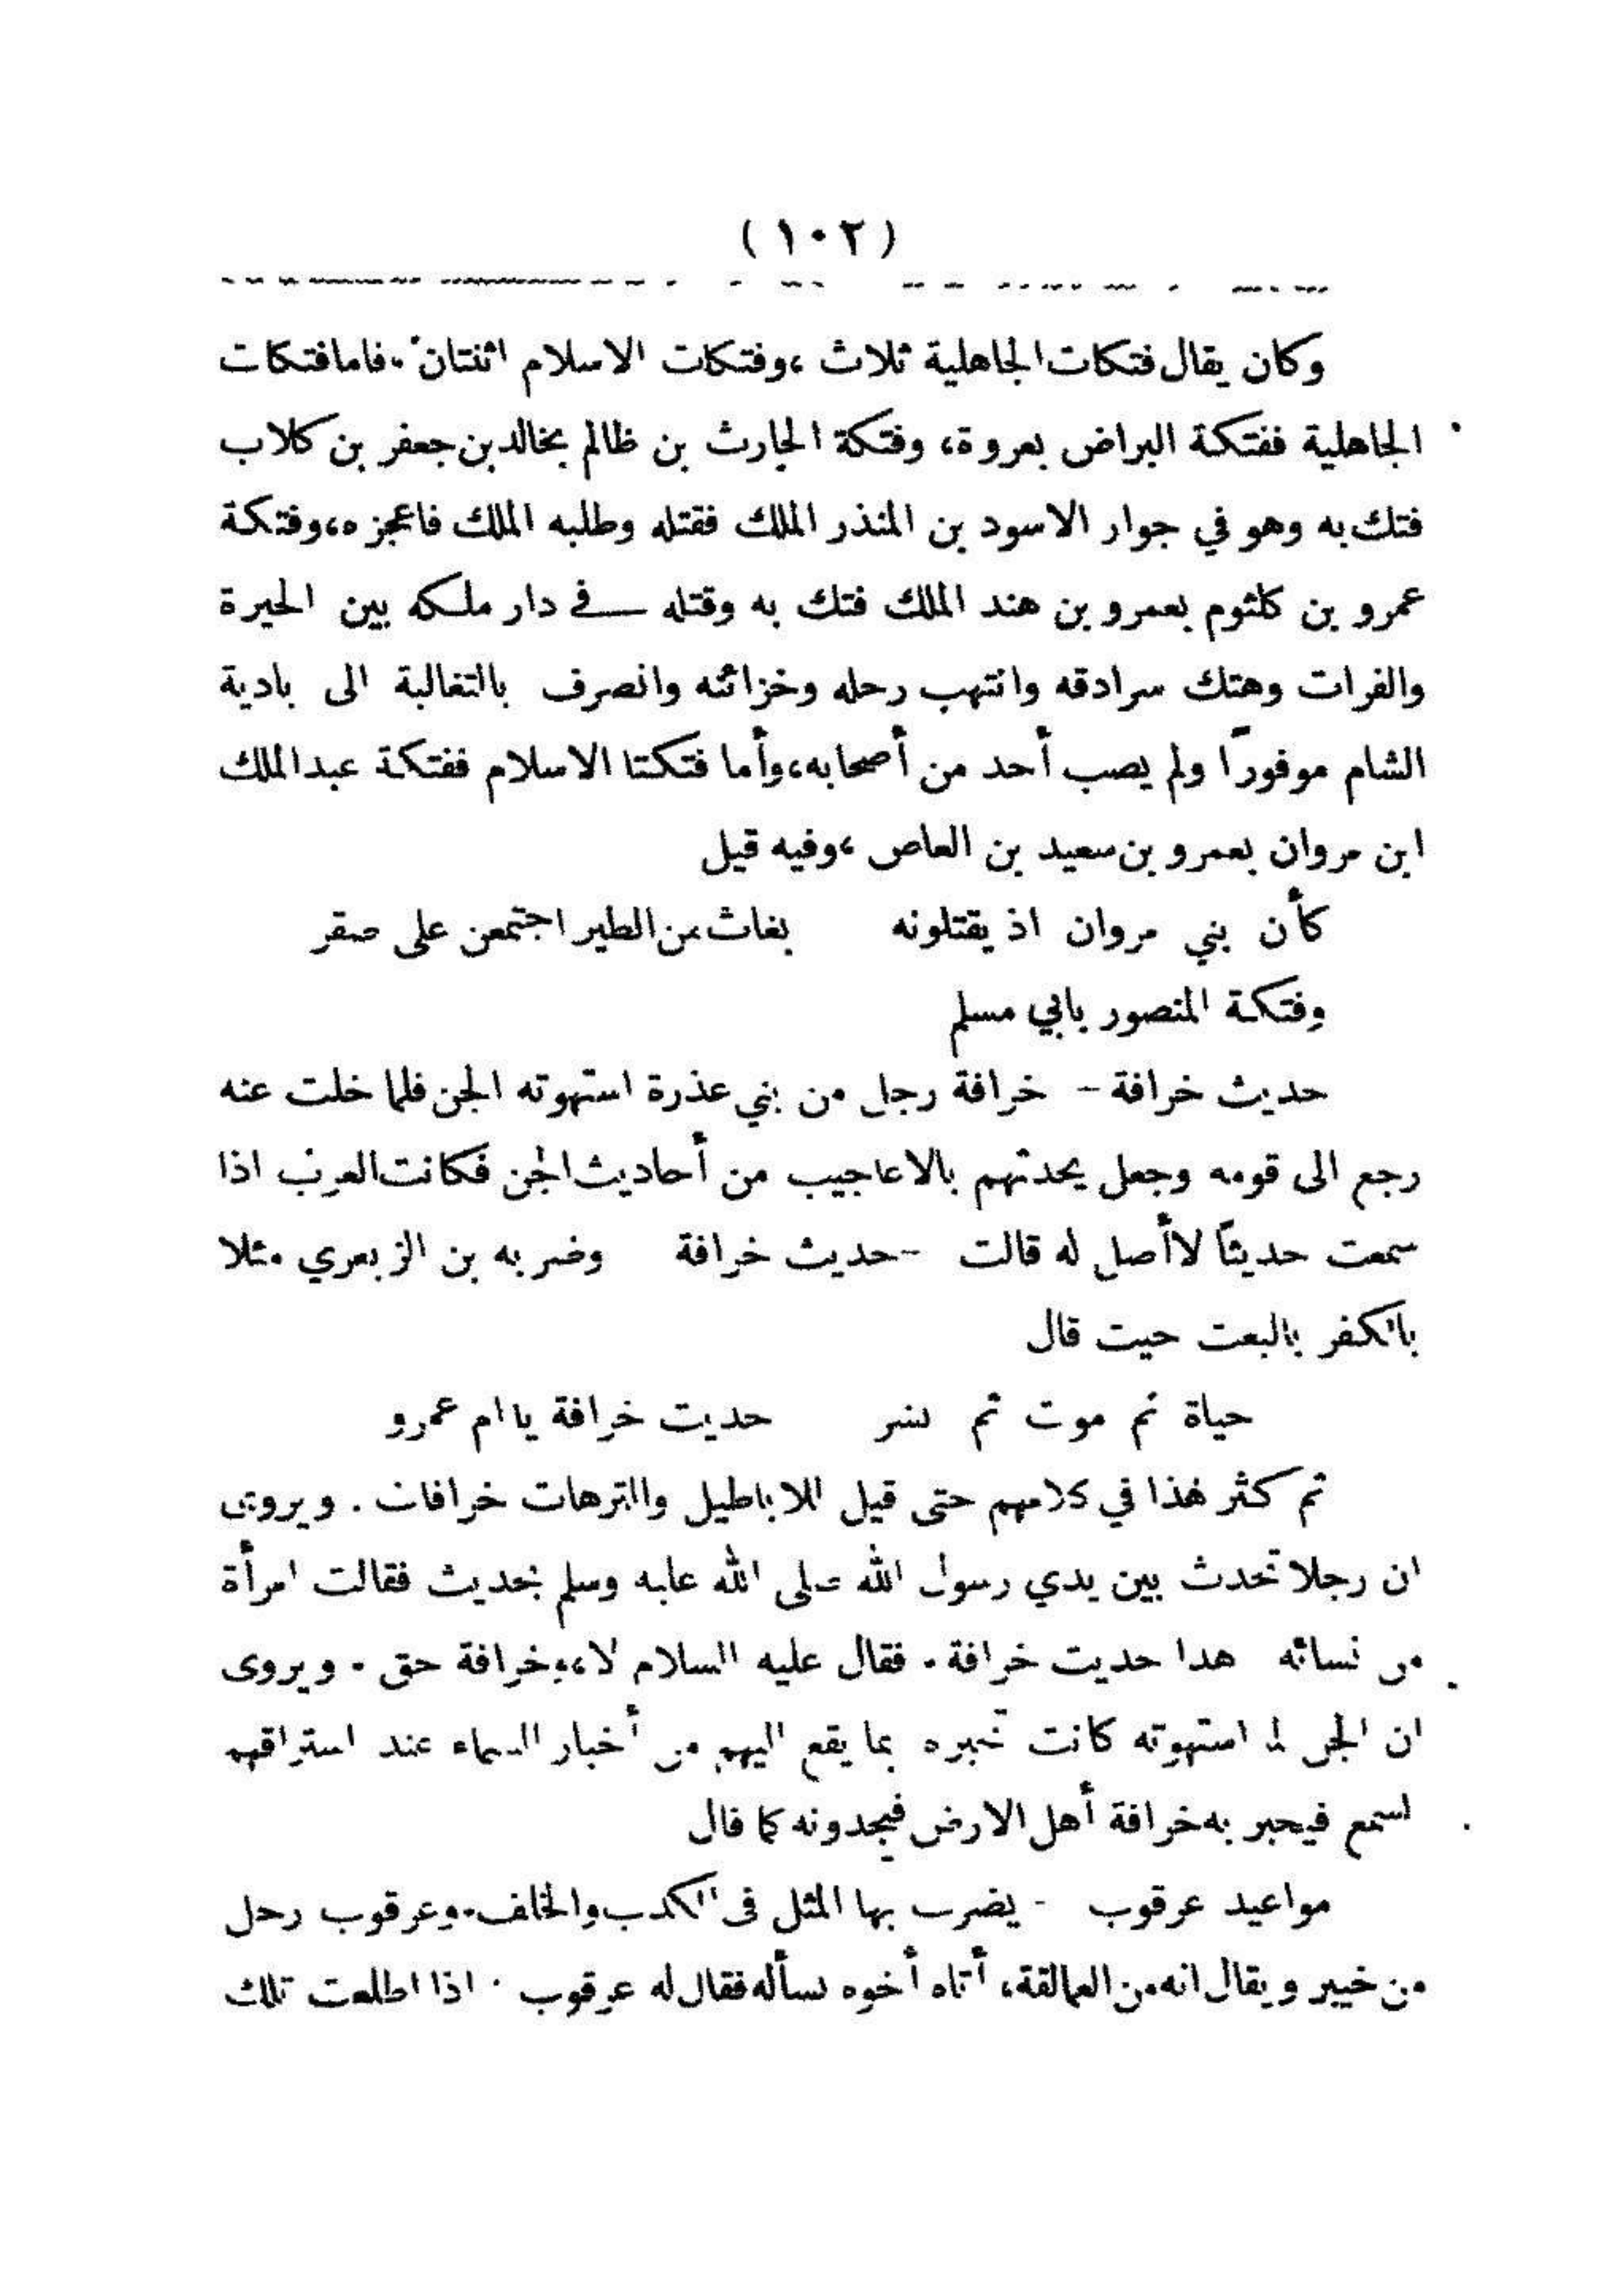 (١٠٢)
وكان يقال فتكات الجاهلية ثلاث ،وفتكات الاسلام اثنتان .فاما فتكات
الجاهلية ففتكة البراض بعروة، وفتكة الحارث بن ظالم بخالد بن جعفر بن كلاب
فتك به وهو في جوار الاسود بن المنذر الملك فقتله وطلبه الملك فاعجزه،وفتكة
عمرو بن كلثوم بعمرو بن هند الملك فتك به وقتله في دار ملكه بين الحيرة
والفرات وهتك سرادقه وانتهب رحله وخزائنه وانصرف بالتغالبة الى بادية
الشام موفورًا ولم يصب أحد من أصحابه،وأما فتكتا الاسلام ففتكة عبد الملك
ابن مروان بعمرو بن سعيد بن العاص ،وفيه قيل
كأن بني مروان اذ يقتلونه بغاث من الطير اجتمعن على صقر
وفتكة المنصور بابي مسلم
حديث خرافة - خرافة رجل من بني عذرة استهوته الجن فلما خلت عنه
رجع الى قومه وجعل يحدثهم بالاعاجيب من أحاديث الجن فكانت العرب اذا
سمعت حديثًا لا أصل له قالت -حديث خرافة وضربه بن الزبعري مثلا
بالكفر بالبعت حيت قال
حياة ثم موت ثم نشر حديت خرافة يا ام عمرو
ثم كثر هذا في كلامهم حتى قيل للاباطيل والترهات خرافات . ويروى
ان رجلا تحدث بين يدي رسول الله صلى الله عليه وسلم بحديث فقالت امرأة
من نسائه هدا حديت خرافة . فقال عليه السلام لا،وخرافة حق . ويروى
ان الجن لما استهوته كانت تخبره بما يقع اليهم من أخبار السماء عند استراقهم
لسمع فيحبر به خرافة أهل الارض فيجدونه كما قال
مواعيد عرقوب - يضرب بها المثل فى الكدب والخلف.وعرقوب رحل
من خيبر ويقال انه من العمالقة، أتاه أخوه يسأله فقال له عرقوب . اذا اطلعت تلك